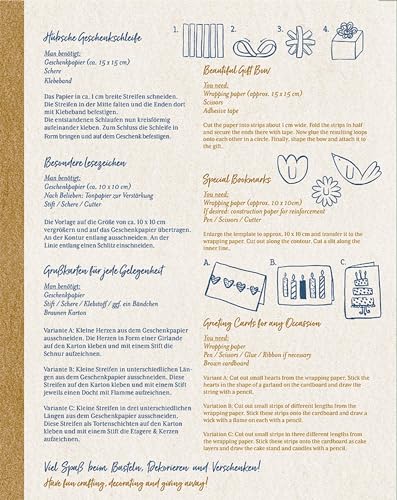 Hübsche Geschenkschleife
Man benötigt:
Geschenkpapier (ca. 15 x 15 cm)
Schere
Klebeband
Das Papier in ca. 1 cm breite Streifen schneiden.
Die Streifen in der Mitte falten und die Enden dort
mit Klebeband befestigen.
Die entstandenen Schlaufen nun kreisförmig
aufeinander kleben. Zum Schluss die Schleife in
Form bringen und auf dem Geschenk befestigen.
1.
2.
3.
4.
Beautiful Gift Bow
You need:
Wrapping paper (approx. 15 x 15 cm)
Scissors
Adhesive tape
Cut the paper into strips about 1 cm wide. Fold the strips in half
and secure the ends there with tape. Now glue the resulting loops
onto each other in a circle. Finally, shape the bow and attach it to
the gift.
Besondere Lesezeichen
Man benötigt:
Geschenkpapier (ca. 10 x 10 cm)
Nach Belieben: Tonpapier zur Verstärkung
Stift / Schere / Cutter
Die Vorlage auf die Größe von ca. 10 x 10 cm
vergrößern und auf das Geschenkpapier übertragen.
An der Kontur entlang ausschneiden. An der
Linie entlang einen Schlitz einschneiden.
Special Bookmarks
You need:
Wrapping paper (approx. 10 x 10cm)
If desired: construction paper for reinforcement
Pen / Scissors / Cutter
Enlarge the template to approx. 10 x 10 cm and transfer it to the
wrapping paper. Cut out along the contour. Cut a slit along the
inner line.
Grußkarten für jede Gelegenheit
Man benötigt:
Geschenkpapier
Stift / Schere / Klebstoff / ggf. ein Bändchen
Braunen Karton
Variante A: Kleine Herzen aus dem Geschenkpapier
ausschneiden. Die Herzen in Form einer Girlande
auf den Karton kleben und mit einem Stift die
Schnur aufzeichnen.
Variante B: Kleine Streifen in unterschiedlichen Län-
gen aus dem Geschenkpapier ausschneiden. Diese
Streifen auf den Karton kleben und mit einem Stift
jeweils einen Docht mit Flamme aufzeichnen.
Variante C: Kleine Streifen in drei unterschiedlichen
Längen aus dem Geschenkpapier ausschneiden.
Diese Streifen als Tortenschichten auf den Karton
kleben und mit einem Stift die Etagere & Kerzen
aufzeichnen.
A.
B.
C.
Greeting Cards for any Occassion
You need:
Wrapping paper
Pen / Scissors / Glue / Ribbon if necessary
Brown cardboard
Variant A: Cut out small hearts from the wrapping paper. Stick the
hearts in the shape of a garland on the cardboard and draw the
string with a pencil.
Variation B: Cut out small strips of different lengths from the
wrapping paper. Stick these strips onto the cardboard and draw a
wick with a flame on each with a pencil.
Variation C: Cut out small strips in three different lengths from
the wrapping paper. Stick these strips onto the cardboard as cake
layers and draw the cake stand and candles with a pencil.
Viel Spaß beim Basteln, Dekorieren und Verschenken!
Have fun crafting, decorating and giving away!